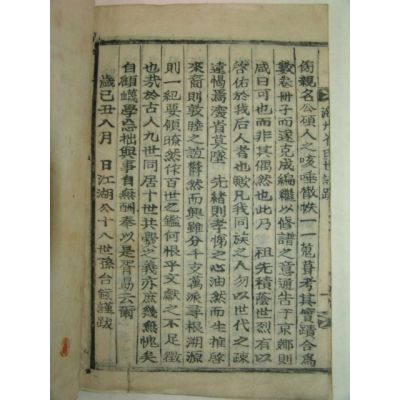 衡親名公碩人之咳唾散帙一一蒐葺考其實蹟合爲
數卷冊子而遂克成編繼以修譜之意通告于京鄉則
咸曰可也而非其偶然也此乃 祖先積蔭世烈有以
啓佑於我后人者也歟凡我同族之人勿以世代之疎
遠惕焉齊省莫墜 先緖則孝悌之心油然而生推啓
來裔則敦睦之誼蔚然而興雖分千支萬派尋根溯源
則一紀要領瞭然係百世之鑑何恨乎文獻之不足徵
也哉於古人九世同居十世共爨之義亦庶幾無愧矣
自顧蟻學忘拙與事自無酬奉以是胥勗云爾
歲己丑八月 日江湖公十八世孫台 謹跋